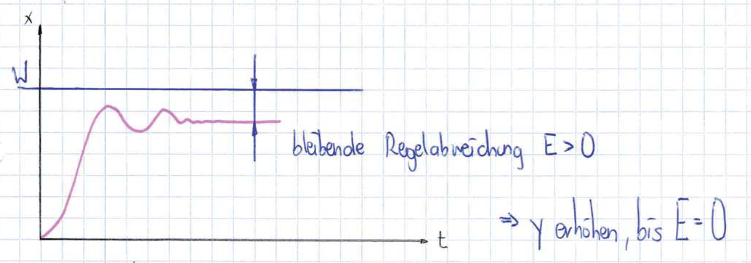 x
W
bleibende Regelabweichung E > 0
t
⇒ y erhöhen, bis E = 0